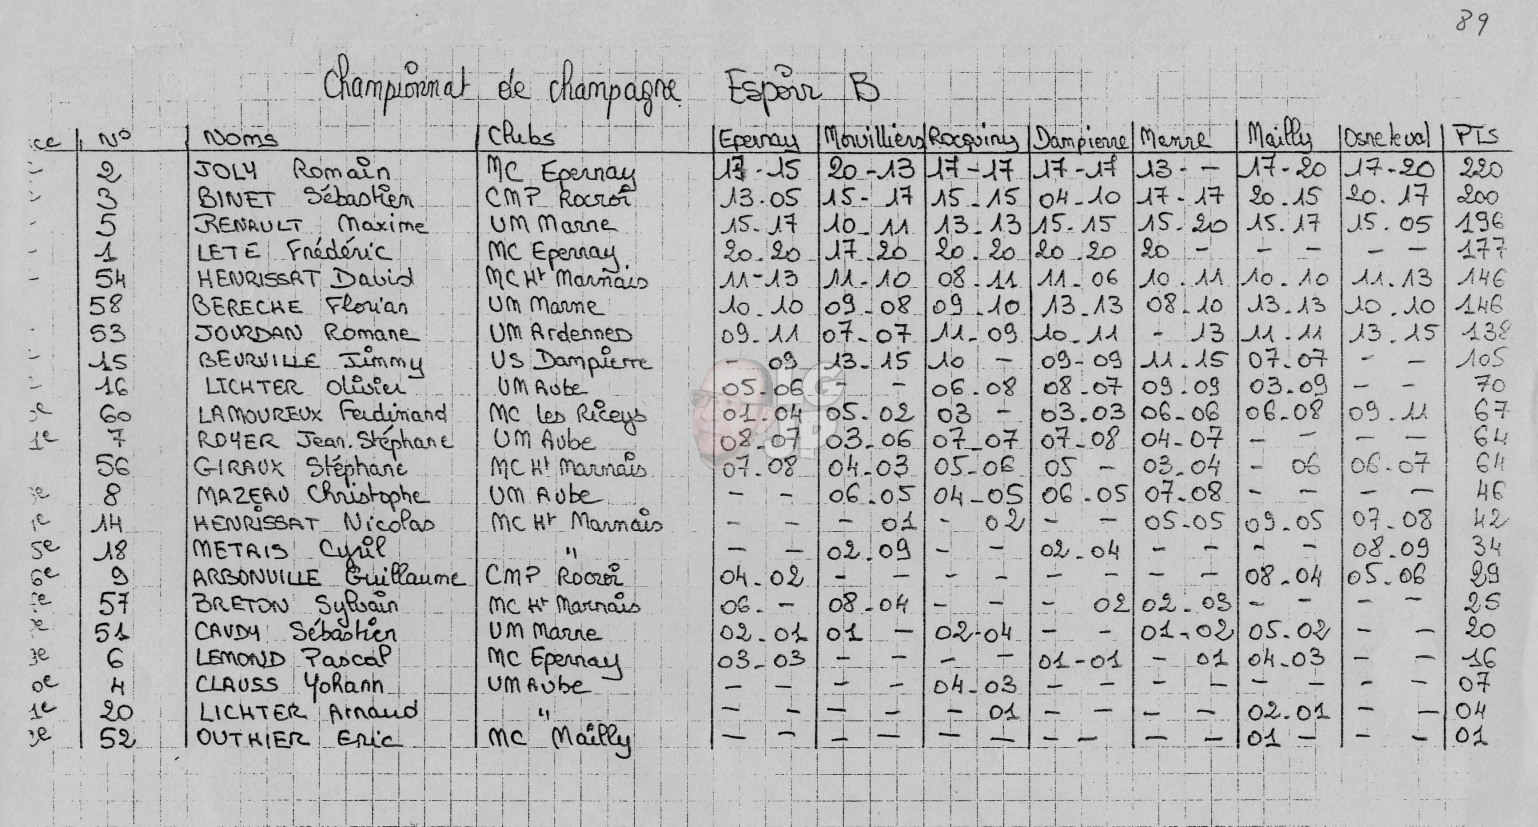 89
Championnat de champagne Espoir B
ce N° Noms Clubs Epernay Morvilliers Rocquiny Dampierre Marne Mailly Osne le val PTS
- 2 JOLY Romain MC Epernay 17-15 20-13 17-17 17-17 13-- 17-20 17-20 220
- 3 BINET Sébastien CMP Rocroi 13.05 15-17 15.15 04-10 17-17 20.15 20.17 200
- 5 RENAULT Maxime UM Marne 15.17 10-11 13-13 15-15 15.20 15.17 15.05 196
- 1 LETE Frédéric MC Epernay 20.20 17.20 20.20 20.20 20 - - - - - 177
- 54 HENRISSAT David MC Ht Marnais 11-13 11-10 08.11 11.06 10.11 10.10 11.13 146
- 58 BERECHE Florian UM Marne 10.10 09-08 09.10 13.13 08.10 13.13 10.10 146
- 53 JOURDAN Romane UM Ardennes 09.11 07-07 11-09 10-11 - 13 11.11 13.15 138
- 15 BEURVILLE Jimmy US Dampierre - 09 13-15 10 - 09-09 11.15 07.07 - - 105
- 16 LICHTER Olivier UM Aube 05.06 - - 06.08 08-07 09.09 03.09 - - 70
e 60 LAMOUREUX Ferdinand MC les Riceys 01.04 05.02 03 - 03.03 06-06 06.08 09.11 67
1e 7 ROYER Jean.Stéphane UM Aube 08-07 03-06 07-07 07-08 04-07 - - - - 64
56 GIRAUX Stéphane MC Ht Marnais 07.08 04-03 05-06 05 - 03.04 - 06 06-07 64
e 8 MAZEAU Christophe UM Aube - - 06.05 04-05 06.05 07-08 - - - - 46
e 14 HENRISSAT Nicolas MC Ht Marnais - - - 01 - 02 - - 05-05 09.05 07-08 42
5e 18 METAIS Cyril " - - 02.09 - - 02-04 - - - - 08-09 34
6e 9 ARBONVILLE Guillaume CMP Rocroi 04-02 - - - - - - - - 08-04 05.06 29
e 57 BRETON Sylvain MC Ht Marnais 06. - 08-04 - - - 02 02-03 - - - - 25
e 51 CAUDY Sébastien UM Marne 02-01 01 - 02-04 - - 01-02 05-02 - - 20
e 6 LEMOND Pascal MC Epernay 03-03 - - - - 01-01 - 01 04-03 - - 16
0e 4 CLAUSS Yohann UM Aube - - - - 04-03 - - - - - - - - 07
1e 20 LICHTER Arnaud " - - - - - 01 - - - - 02.01 - - 04
e 52 OUTHIER Eric MC Mailly - - - - - - - - - - 01 - - - 01